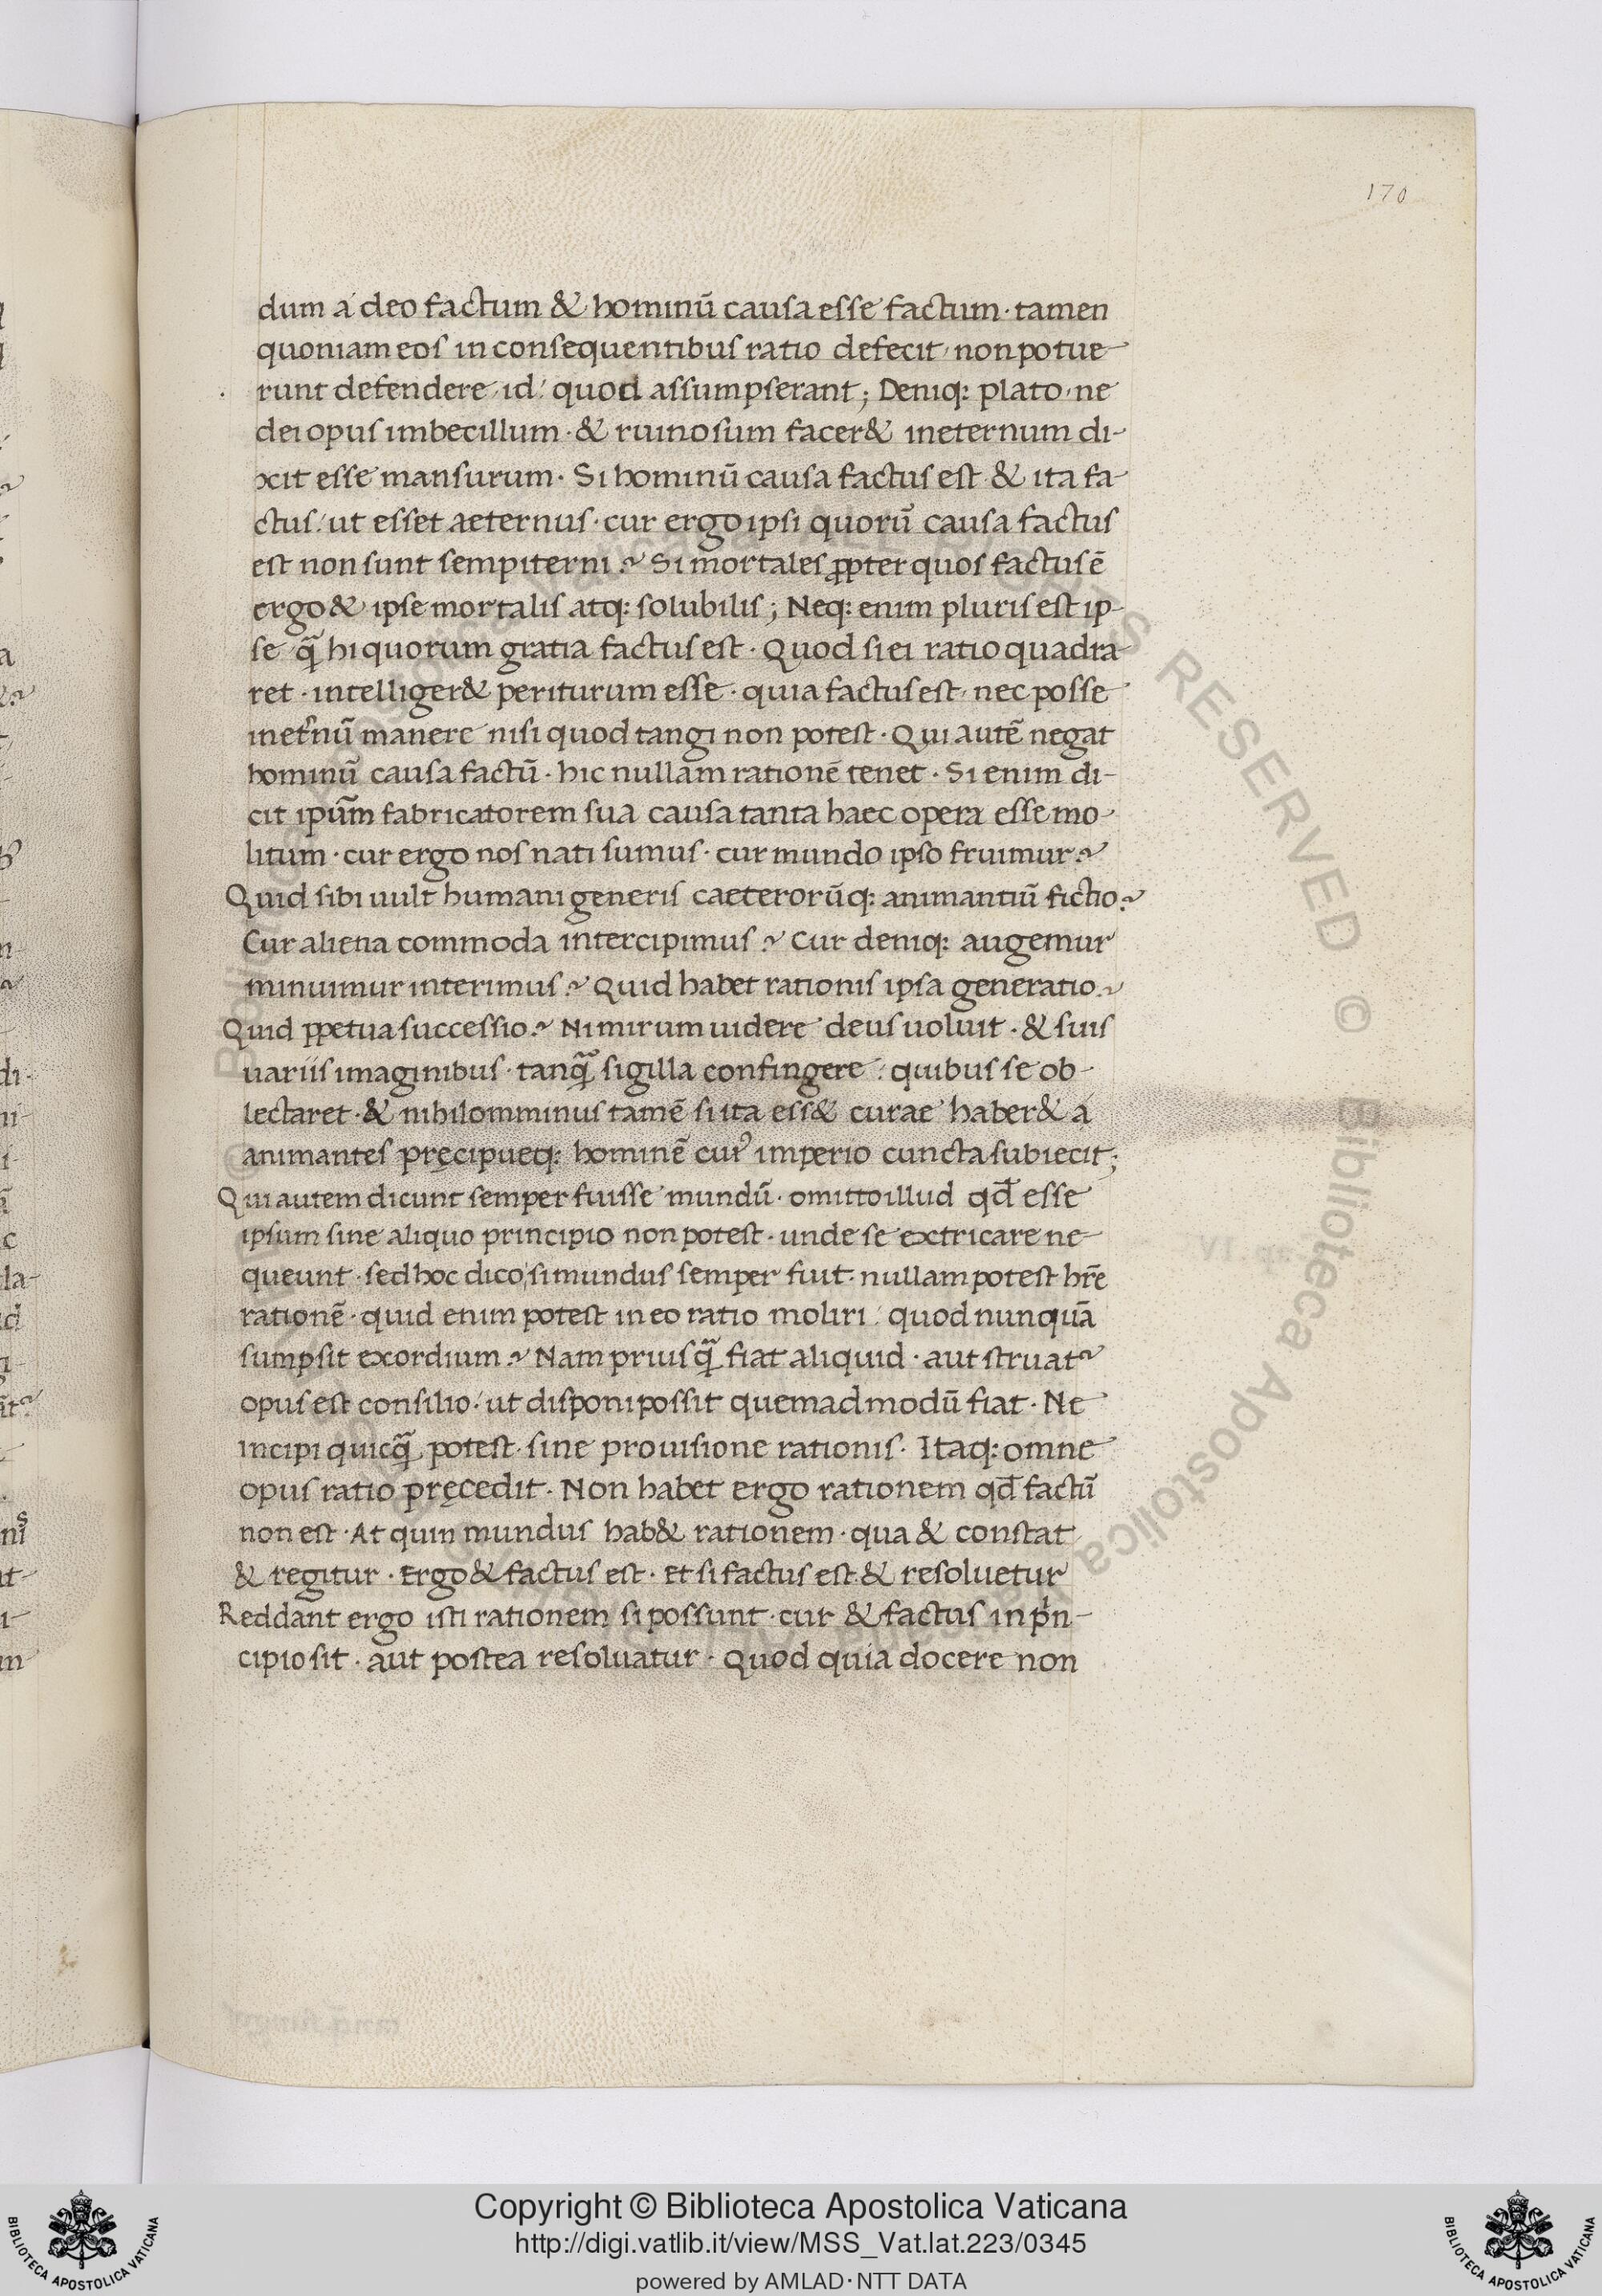 170
dum a deo factum & hominũ causa esse factum · tamen
quoniam eos in consequentibus ratio defecit, non potue-
runt defendere id quod assumpserant; Deniq: plato, ne
dei opus imbecillum · & ruinosum facer& in eternum di-
xit esse mansurum · Si hominũ causa factus est & ita fa-
ctus ut esset aeternus · cur ergo ipsi quorũ causa factus
est non sunt sempiterni? Si mortales ꝓpter quos factus ẽ
ergo & ipse mortalis atq: solubilis; Neq: enim pluris est ip-
se q̃ hi quorum gratia factus est · Quod si ei ratio quadra
ret · intelliger& periturum esse · quia factus est, nec posse
in et̃nũ manere nisi quod tangi non potest · Qui autẽ negat
hominũ causa factũ · hic nullam rationẽ tenet · Si enim di-
cit ip̃um fabricatorem sua causa tanta haec opera esse mo-
litum · cur ergo nos nati sumus · cur mundo ipso fruimur?
Quid sibi uult humani generis caeterorũq: animantiũ fictio?
Cur aliena commoda intercipimus? Cur deniq: augemur
minuimur interimus? Quid habet rationis ipsa generatio?
Quid ꝑpetua successio? Nimirum uidere deus uoluit · & suis
uariis imaginibus · tanq̃ sigilla confingere quibus se ob-
lectaret · & nihilomminus tamẽ si ita ess& curae haber& a
animantes pręcipueq: hominẽ cuiꝰ imperio cuncta subiecit;
Qui autem dicunt semper fuisse mundũ · omitto illud qd̃ esse
ipsum sine aliquo principio non potest · unde se extricare ne-
queunt · sed hoc dico, si mundus semper fuit · nullam potest hr̃e
rationẽ · quid enim potest in eo ratio moliri quod nunquã
sumpsit exordium? Nam priusq̃ fiat aliquid · aut struat᷑
opus est consilio ut disponi possit quemadmodũ fiat · Ne
incipi quicq̃ potest · sine prouisione rationis · Itaq: omne
opus ratio pręcedit · Non habet ergo rationem qd̃ factũ
non est · At quin mundus hab& rationem · qua & constat
& regitur · Ergo & factus est · Et si factus est & resoluetur
Reddant ergo isti rationem si possunt · cur & factus in pⁱn-
cipio sit · aut postea resoluatur · Quod quia docere non
Copyright © Biblioteca Apostolica Vaticana
http://digi.vatlib.it/view/MSS_Vat.lat.223/0345
powered by AMLAD·NTT DATA
BIBLIOTECA APOSTOLICA VATICANA
BIBLIOTECA APOSTOLICA VATICANA